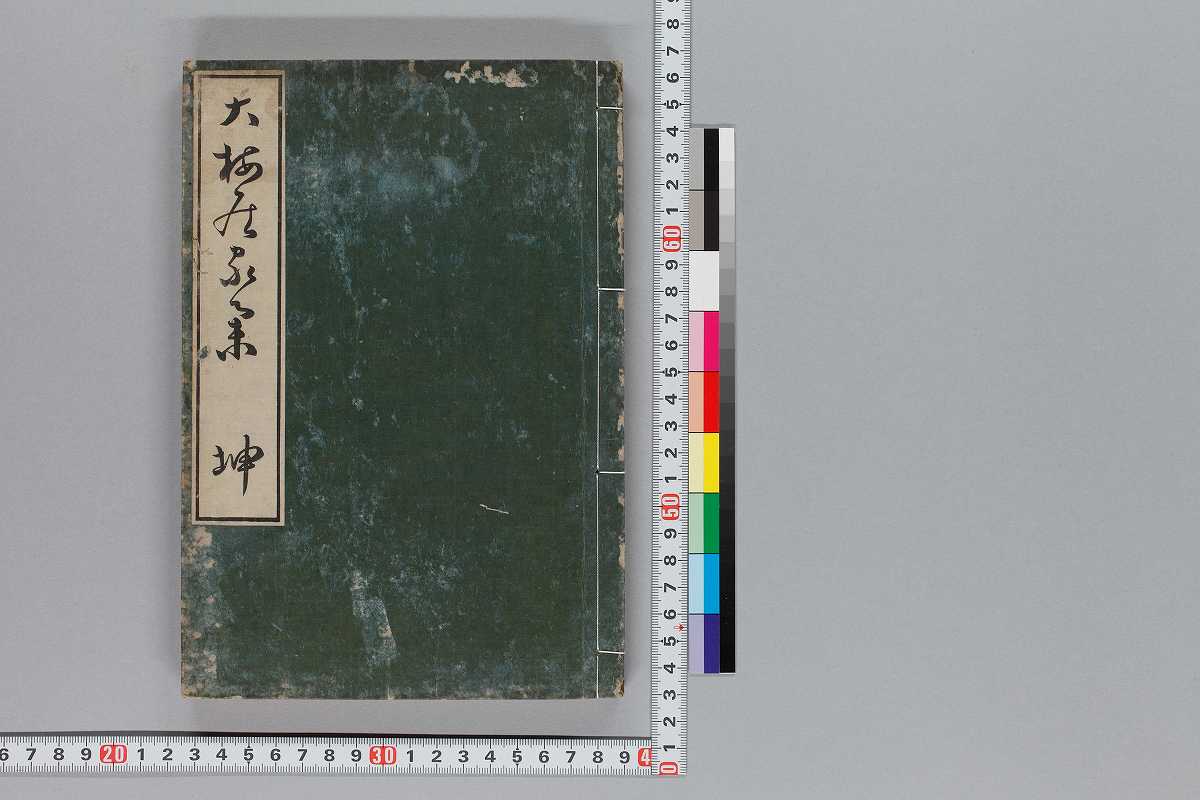 大梅居家集 坤
8 7 6 5 4 3 2 1 60 9 8 7 6 5 4 3 2 1 50 9 8 7 6 5 4 3 2 1
6 7 8 9 20 1 2 3 4 5 6 7 8 9 30 1 2 3 4 5 6 7 8 9 4